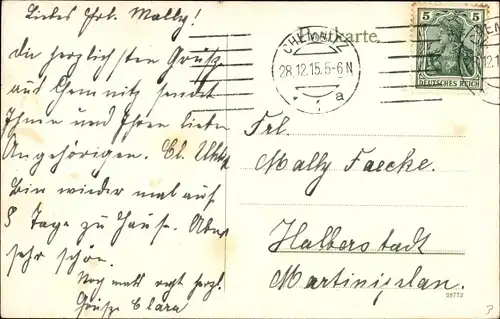 Liebes Frl. Mally!
Die herzlichsten Grüße
aus Chemnitz sendet
Ihnen und Ihren lieben
Angehörigen. Cl.
Bin wieder mal auf
8 Tage zu Hause. Aber
sehr schön.
Noch mals herzl.
Grüße Clara
Postkarte.
CHEMNITZ
28.12.15.5-6N
a
5 5
DEUTSCHES REICH
Frl.
Mally Faecke.
Halberstadt
Martiniplan.
28772